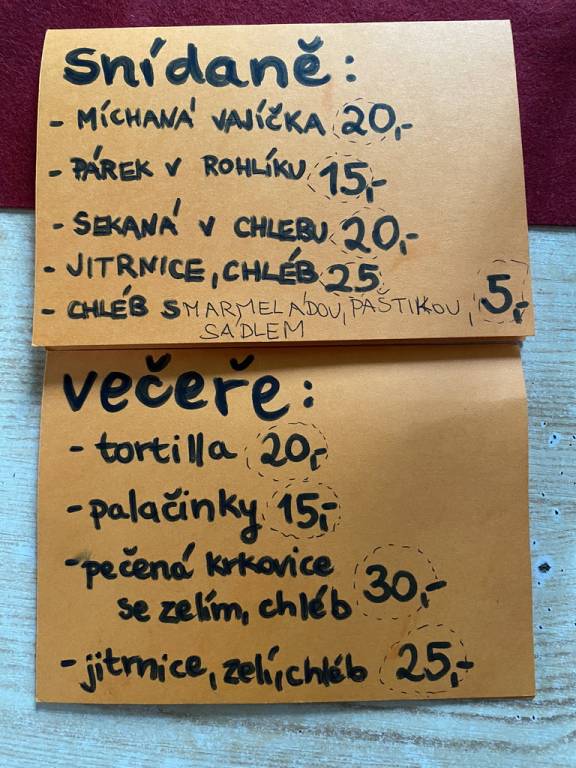 snídaně:
- MÍCHANÁ VAJÍČKA 20,-
- PÁREK V ROHLÍKU 15,-
- SEKANÁ V CHLEBU 20,-
- JITRNICE, CHLÉB 25
- CHLÉB S MARMELÁDOU, PAŠTIKOU, 5,-
SÁDLEM
večeře:
- tortilla 20,-
- palačinky 15,-
- pečená krkovice 30,-
se zelím, chléb
- jitrnice, zelí, chléb 25,-